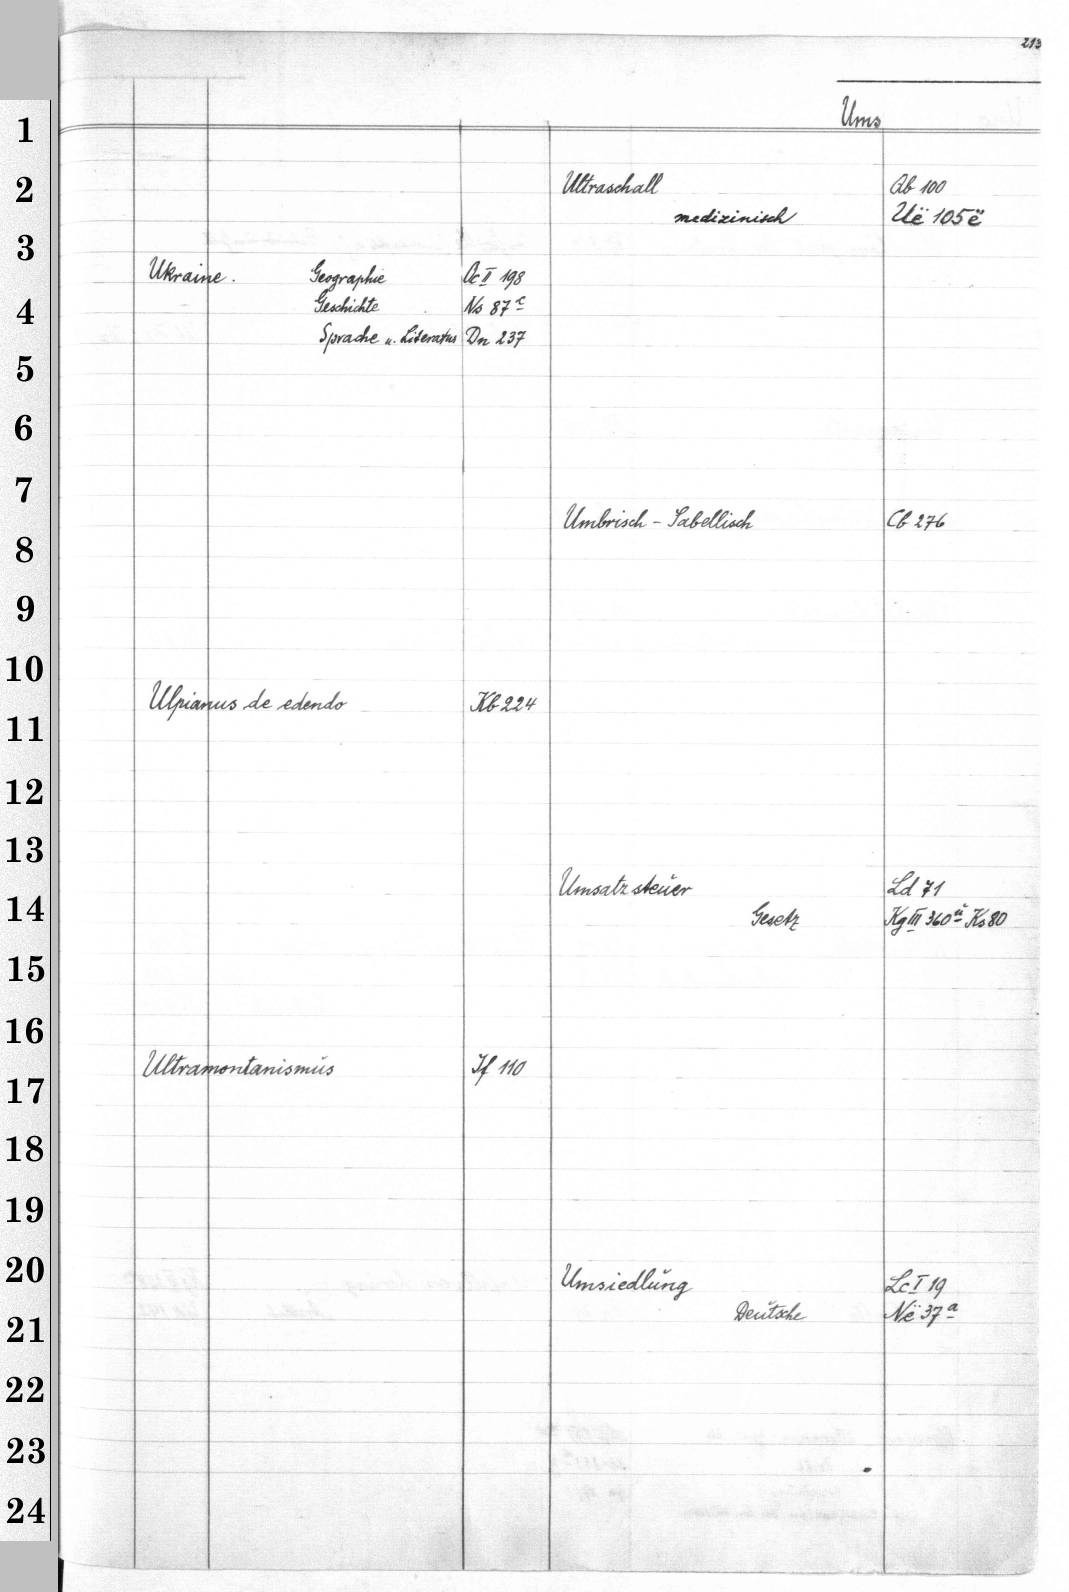 213
Ums
1
2
3
4
5
6
7
8
9
10
11
12
13
14
15
16
17
18
19
20
21
22
23
24
Ukraine. Geographie Oc II 198
Geschichte Ns 87 c
Sprache u. Literatur Dn 237
Ulpianus de edendo Kb 224
Ultramontanismus If 110
Ultraschall Qb 100
medizinisch Uë 105 ë
Umbrisch - Sabellisch Cb 276
Umsatzsteuer Ld 71
Gesetz Kg III 360 ü Ks 80
Umsiedlung Lc I 19
Deutsche Në 37 a